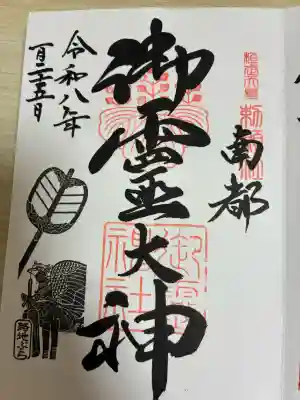 南都
御霊大神
令和八年
一月二十五日
御霊
神社